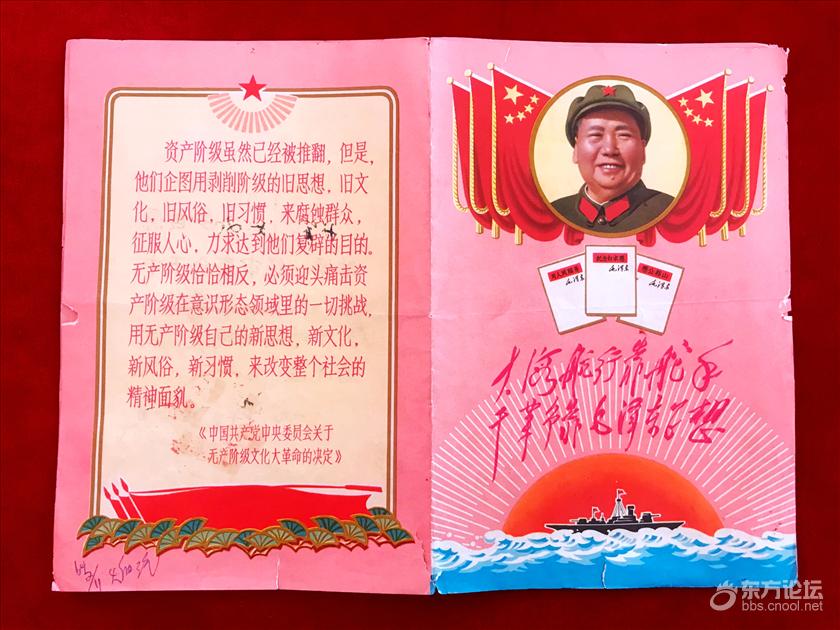 资产阶级虽然已经被推翻，但是，
他们企图用剥削阶级的旧思想，旧文
化，旧风俗，旧习惯，来腐蚀群众，
征服人心，力求达到他们复辟的目的。
无产阶级恰恰相反，必须迎头痛击资
产阶级在意识形态领域里的一切挑战，
用无产阶级自己的新思想，新文化，
新风俗，新习惯，来改变整个社会的
精神面貌。
《中国共产党中央委员会关于
无产阶级文化大革命的决定》
为人民服务
毛泽东
纪念白求恩
毛泽东
愚公移山
毛泽东
大海航行靠舵手
干革命靠毛泽东思想
东方论坛
bbs.cnool.net